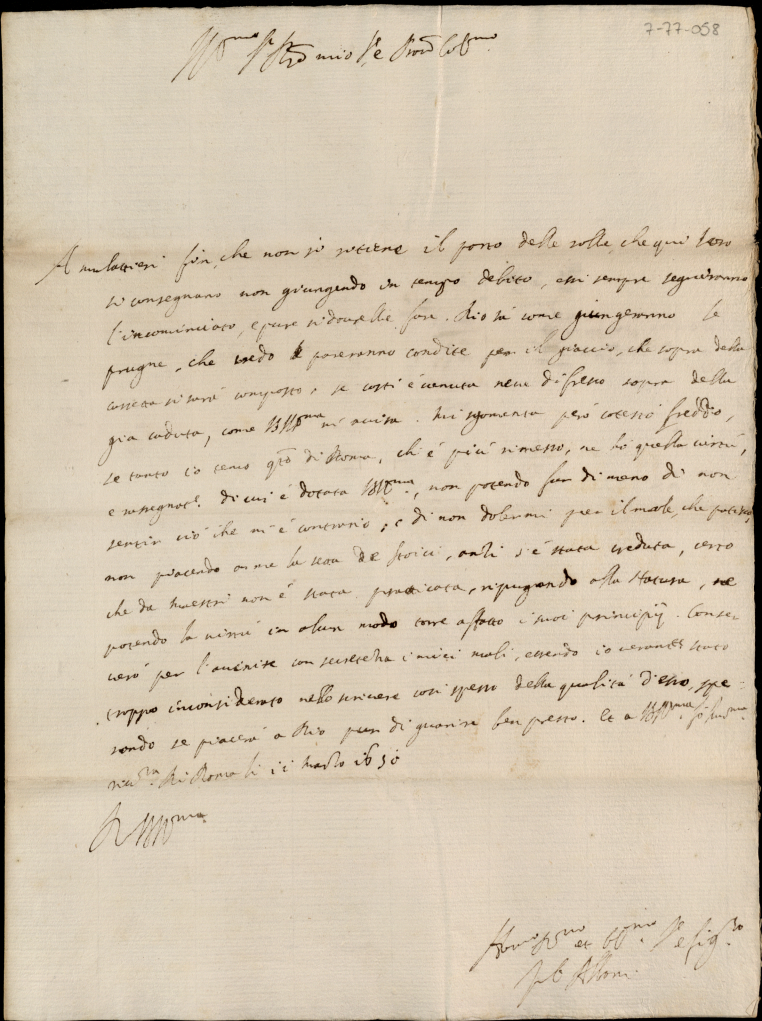 7-77-058
Ill.mo Sr mio Sre e Pron Coll.mo
A mulattieri fin, che non si ritiene il porto delle robbe, che qui loro
si consegnano non giungendo in tempo debito, essi sempre seguiranno
l'incominciato, e pure si dourebbe fare. Dio sà come giungeranno le
prugne, che credo pareranno condite per il giaccio, che sopra della
cassetta si sarà composto, se costì è venuta neve di fresco sopra della
già caduta, come V.S. Ill.ma mi avisa. Mi sgomenta però cotesto freddo,
se tanto io temo q.to di Roma, che è più rimesso, ne hò quella virtù,
e rassegnat.e di cui è dotata V.S. Ill.ma, non potendo far di meno di non
sentir ciò che m'è contrario, e di non dolermi per il male, che patisco,
non piacendo a me la setta de Stoici, anzi s'è stata creduta, certo
che da Maestri non è stata pratticata, ripugnando alla Natura, ne
potendo la virtù in alcun modo torre affatto i suoi principij. Conser-
verò per l'avenire con secretezza i miei mali, essendo io veram.te stato
troppo inconsiderato nello scrivere così spesso della qualità d'essi, spe-
rando se piacerà a Dio pur di guarire ben presto. Et a V.S. Ill.ma fò hum.ma
riu.za Di Roma li 11 Marzo 1650
D V.S. Ill.ma